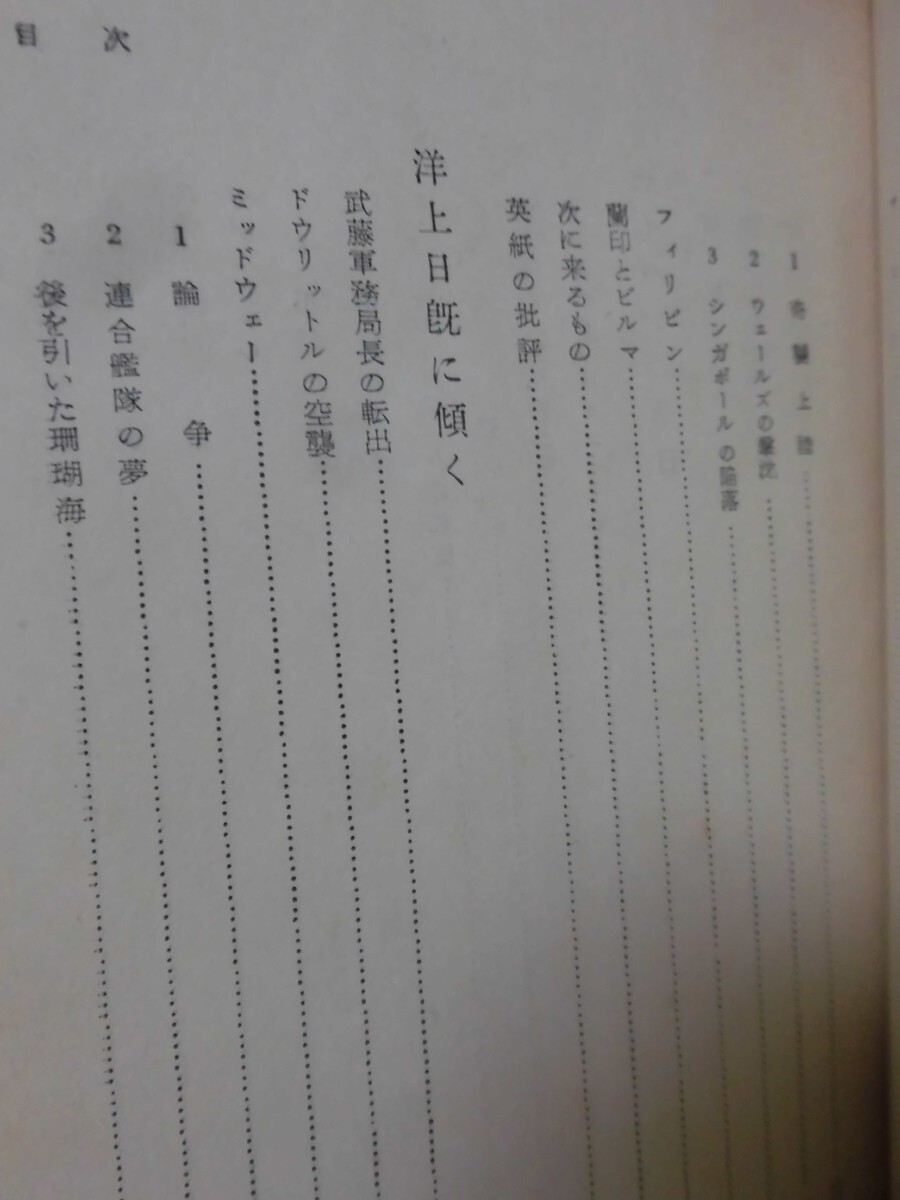 1 奇襲上陸
2 ウェールズの撃沈
3 シンガポールの陥落
フィリピン
蘭印とビルマ
次に来るもの
英紙の批評
洋上日既に傾く
武藤軍務局長の転出
ドウリットルの空襲
ミッドウェー
1 論争
2 連合艦隊の夢
3 後を引いた珊瑚海
目次